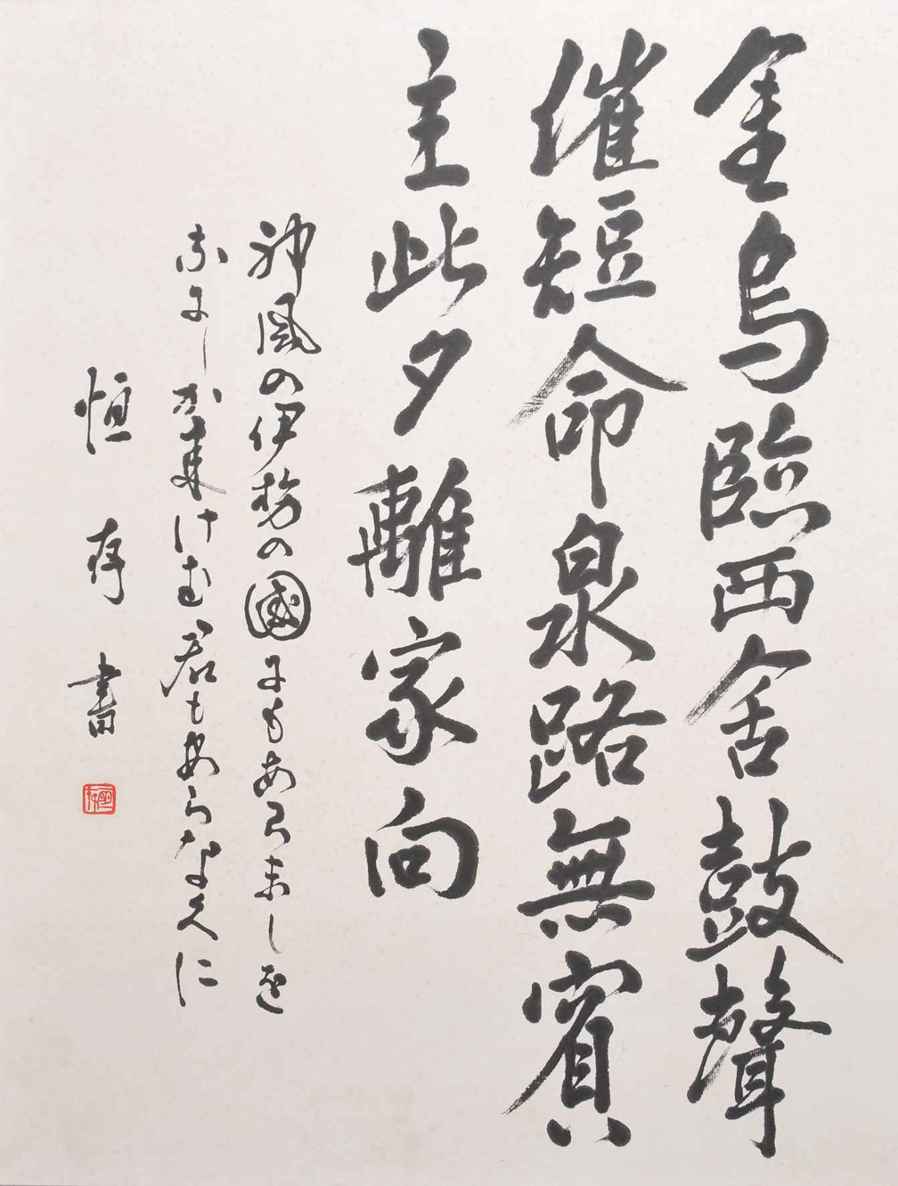 金烏臨西舎鼓聲
催短命泉路無賓
主此夕離家向
神風の伊勢の國にもあらましを
なにしか来けむ君もあらなくに
恒存書